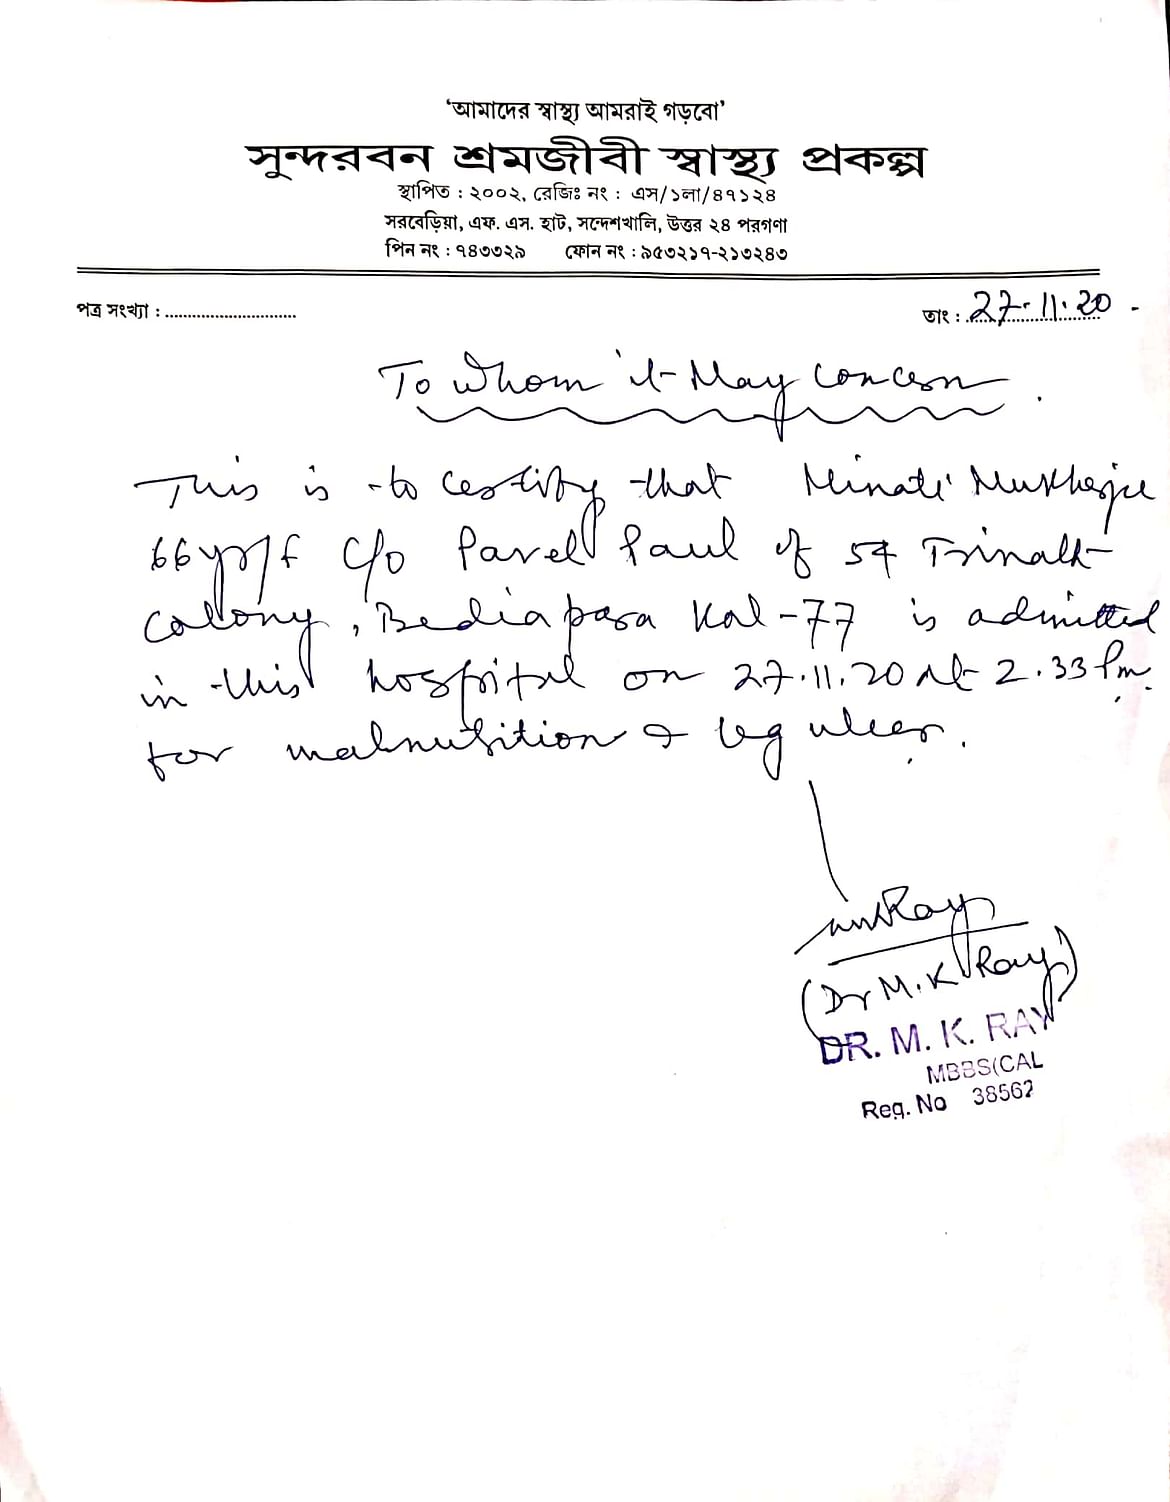 ‘আমাদের স্বাস্থ্য আমরাই গড়বো’
সুন্দরবন শ্রমজীবী স্বাস্থ্য প্রকল্প
স্থাপিত : ২০০২, রেজিঃ নং : এস/১লা/৪৭১২৪
সরবেড়িয়া, এফ. এস. হাট, সন্দেশখালি, উত্তর ২৪ পরগণা
পিন নং : ৭৪৩৩২৯ ফোন নং : ৯৫৩২১৭-২১৩২৪৩
পত্র সংখ্যা : .............................
তাং : 27.11.20
To Whom it May Concern.
This is to certify that Minati Mukherjee
66yrs/f C/o Pavel Paul of 54 Trinath
Colony, Bediapara Kol-77 is admitted
in this hospital on 27.11.20 at 2.33 Pm.
for malnutrition & leg ulcer.
MKRay
(Dr M. K Ray)
DR. M. K. RAY
MBBS(CAL
Reg. No 38562